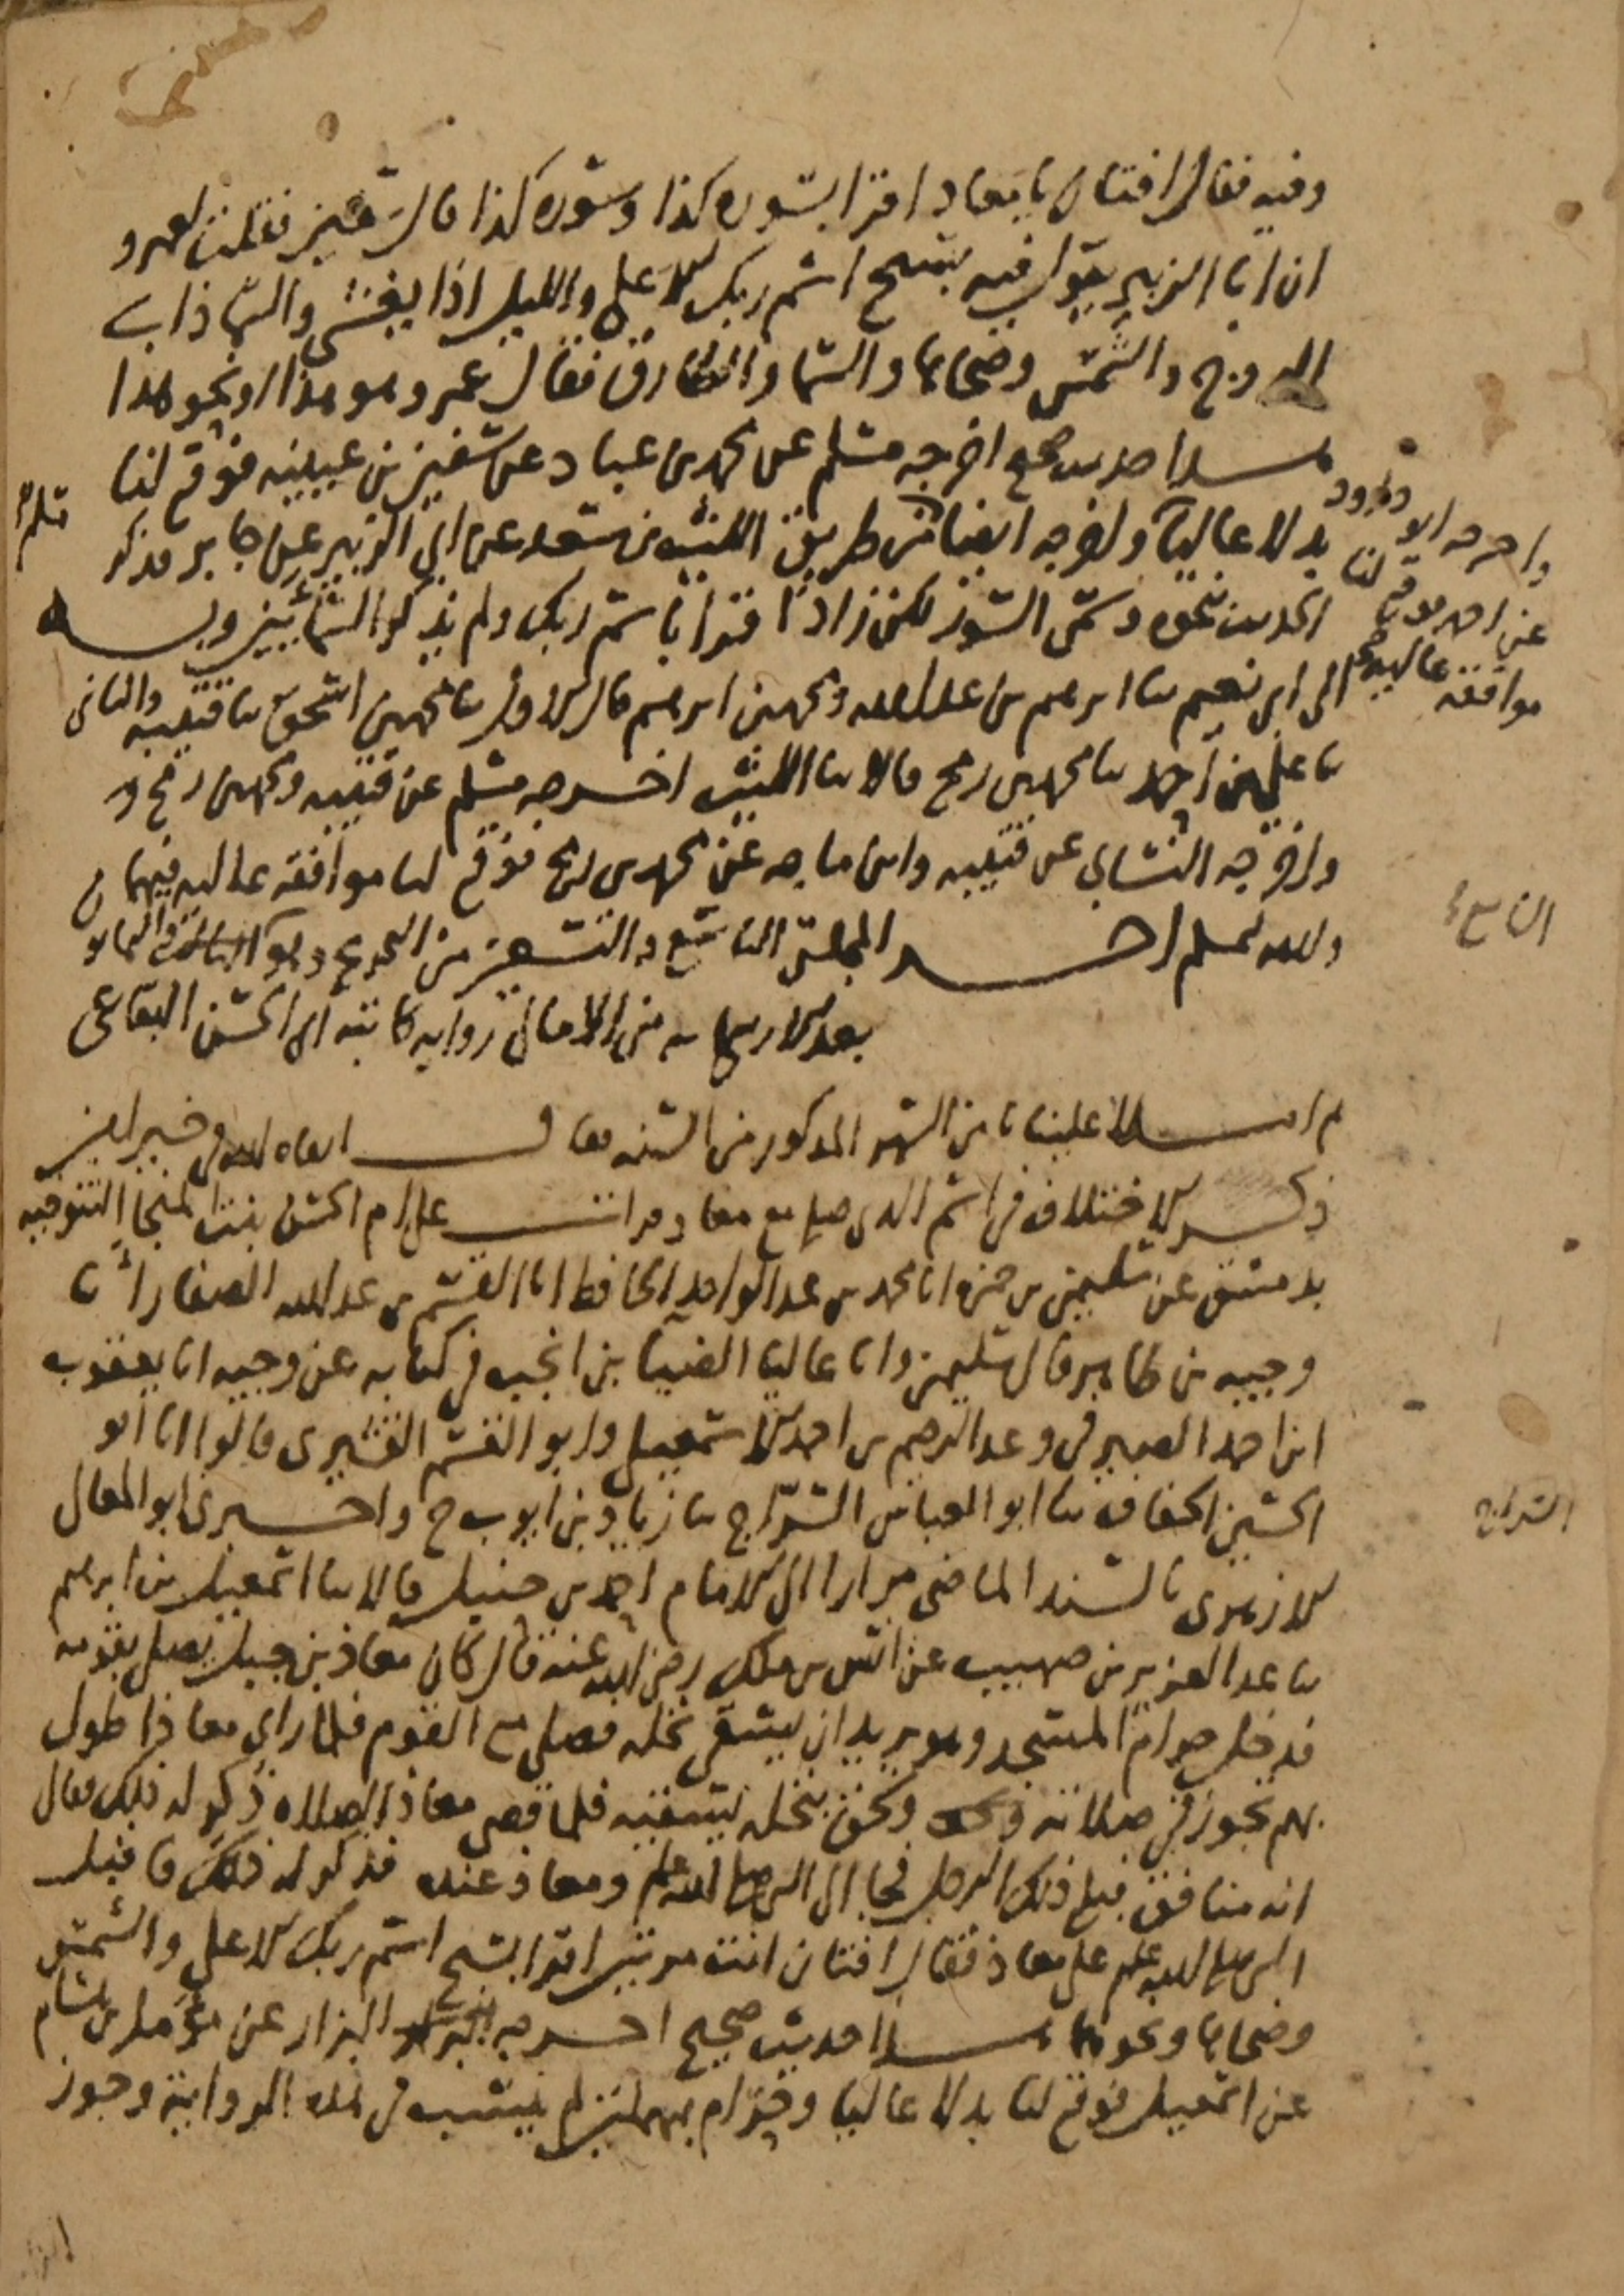 وفيه فقال افتان يا معاذ اقرا بسورة كذا وسورة كذا قال سفين فقلت لعمرو
ان ابا الزبير يقول فيه بسبح اسم ربك الاعلى والليل اذا يغشى والسما ذات
البروج والشمس وضحاها والسما والطارق فقال عمرو هو هذا او نحو هذا
هذا حديث صحيح اخرجه مسلم عن محمد بن عباد عن سفين بن عيينه فوقع لنا
بدلا عاليا واخرجه ايضا من طريق الليث بن سعد عن ابي الزبير عن جابر فذكر
الحديث نحوه وسمى السور لكن زاد اقرا باسم ربك ولم يذكر السمائين وبه
الى ابي نعيم ثنا ابرهيم بن عبد الله ومحمد بن ابرهيم قال الاول ثنا محمد بن اسحق ثنا قتيبه والثاني
ثنا علي بن احمد ثنا محمد بن رمح قالا ثنا الليث اخرجه مسلم عن قتيبه ومحمد بن رمح
واخرجه النسائي عن قتيبه وابن ماجه عن محمد بن رمح فوقع لنا موافقه عاليه فيهما
ولله الحمد اخر المجلس التاسع والتسعين من التخريج وهو
بعد الاربعمايه من الامالي روايه كاتبه ابي الحسن البقاعي
واخرجه ابو داود
عن احمد فوقع لنا
موافقة عالية
التاسع
ثم املا علينا من الشهر المذكور من السنه فقال ابقاه الله في خير امين
ذكر الاختلاف في اسم الذي صلى مع معاذ قرات على ام الحسن بنت المنجا التنوخيه
بدمشق عن سليمن بن حمزه انا محمد بن عبد الواحد الحافظ انا القسم بن عبد الله الصفار انا
وجيه بن طاهر قال سليمن وانا عاليا الضيا بن في كتابه عن وجيه انا يعقوب
ابن احمد الصيرفي وعبد الرحيم بن احمد الاسمعيلي وابو القسم القشيري قالوا انا ابو
الحسين الخفاف ثنا ابو العباس السراج ثنا زياد بن ايوب ح واخبرني ابو المعالي
الازهري بالسند الماضي مرارا الى الامام احمد بن حنبل قالا ثنا اسمعيل بن ابرهيم
ثنا عبد العزيز بن صهيب عن انس بن ملك رضي الله عنه قال كان معاذ بن جبل يصلي بقومه
فدخل حرام المسجد وهو يريد ان يسقي نخله فصلى مع القوم فلما راى معاذا طول
بهم تجوز في صلاته ولحق بنخله يسقيه فلما قضى معاذ الصلاه ذكر له ذلك فقال
انه منافق فبلغ ذلك الرجل فجا الى النبي صلى الله عليه وسلم ومعاذ عنده فذكر له ذلك فاقبل
النبي صلى الله عليه وسلم على معاذ فقال افتان انت مرتين اقرا بسبح اسم ربك الاعلى والشمس
وضحاها ونحوها هذا حديث صحيح اخرجه البزار عن مؤمل بن هشام
عن اسمعيل فوقع لنا بدلا عاليا وحرام بمهملتين لم ينسب في هذه الرواية وجوز
السراج